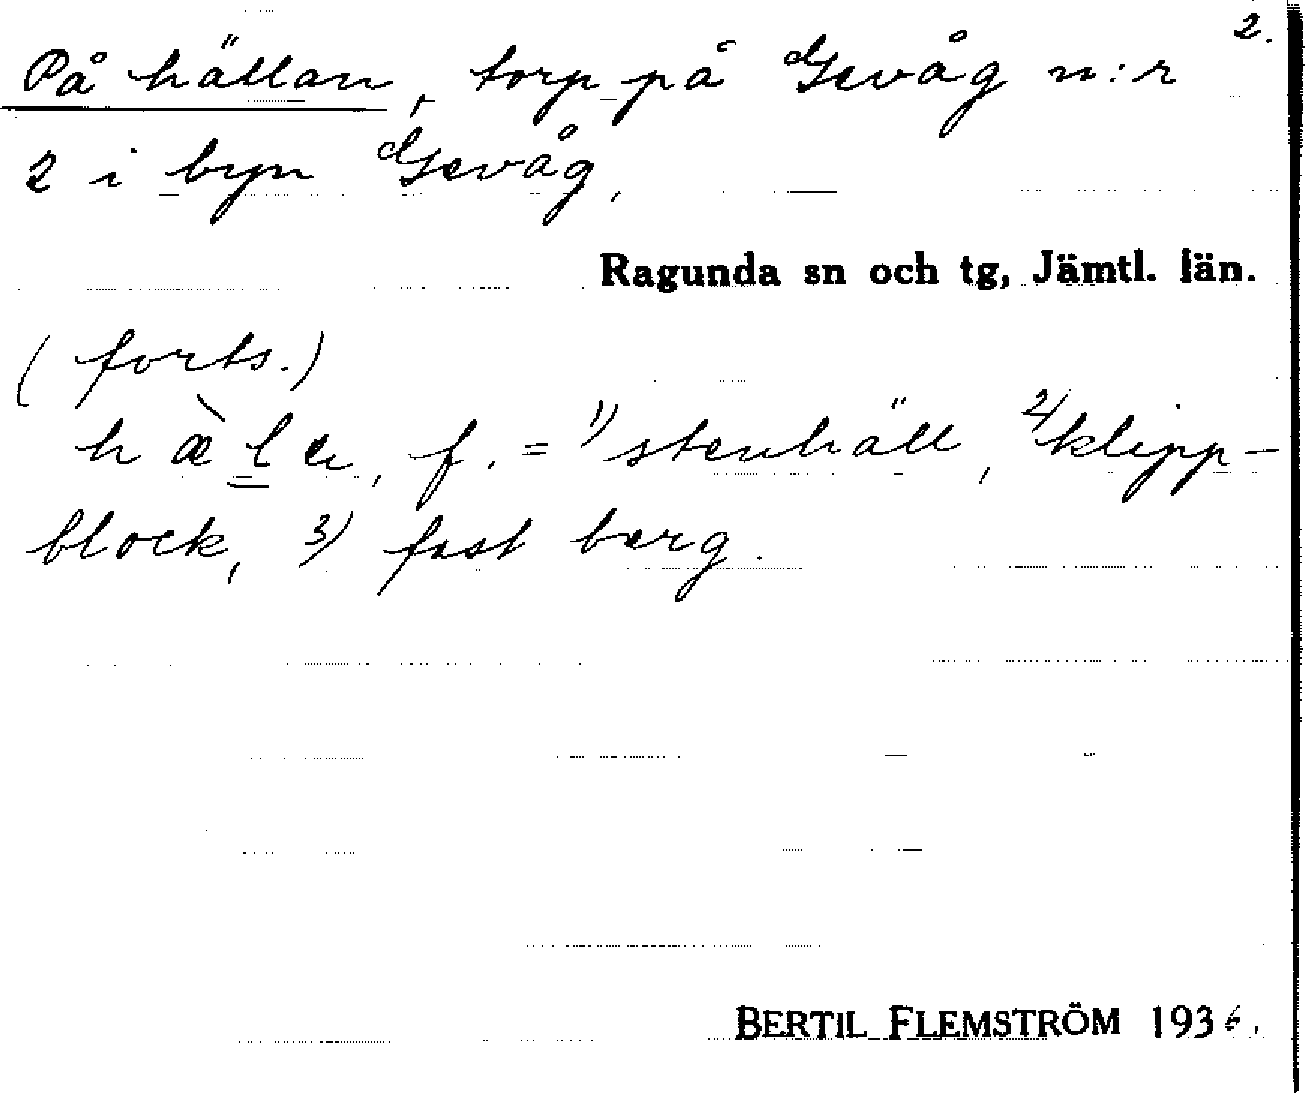 2.
På hällan, torp på Gevåg n:r
2 i byn Gevåg,
Ragunda sn och tg, Jämtl. län.
(forts.)
hæ̀la, f. = 1) stenhäll, 2) klipp-
block, 3) fast berg.
BERTIL FLEMSTRÖM 1936.